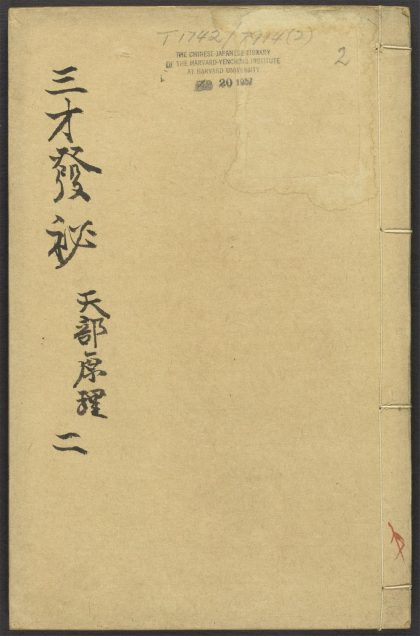 T 1742/7914(2)
2
THE CHINESE-JAPANESE LIBRARY
OF THE HARVARD-YENCHING INSTITUTE
AT HARVARD UNIVERSITY
20 1957
三才發祕
天部原
二